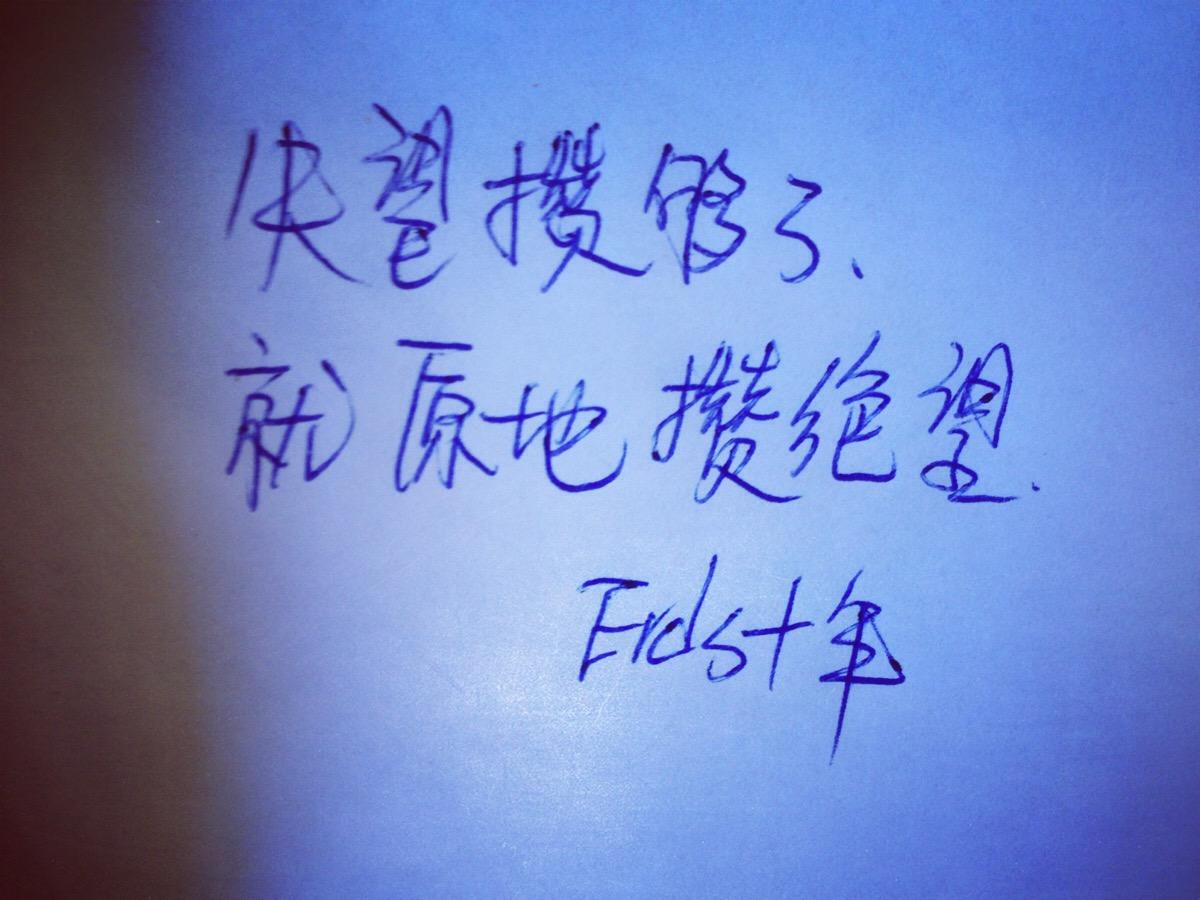 失望攒够了、
就原地攒绝望.
Erds十年